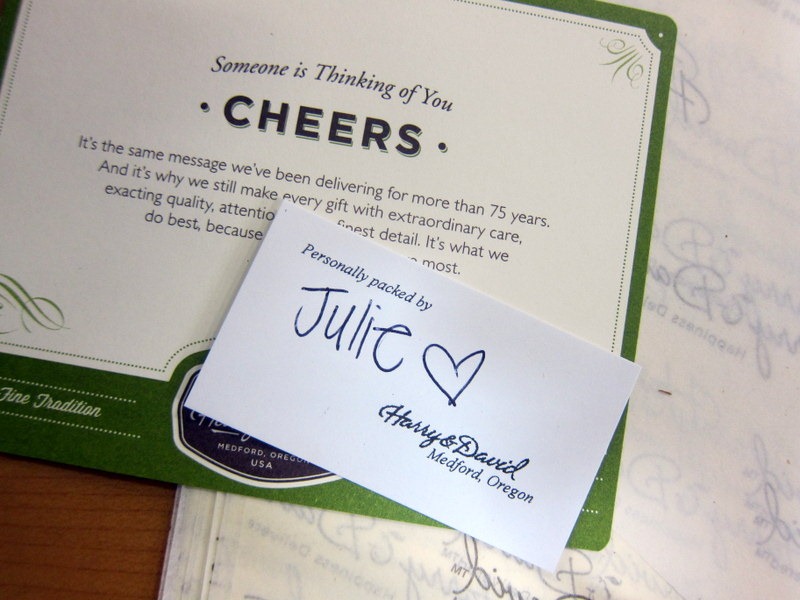 Someone is Thinking of You
• CHEERS •
It's the same message we've been delivering for more than 75 years.
And it's why we still make every gift with extraordinary care,
exacting quality, finest detail. It's what we
do best, because most.
Personally packed by
Julie ♡
Harry & David
Medford, Oregon
Fine Tradition
MEDFORD, OREGON
USA